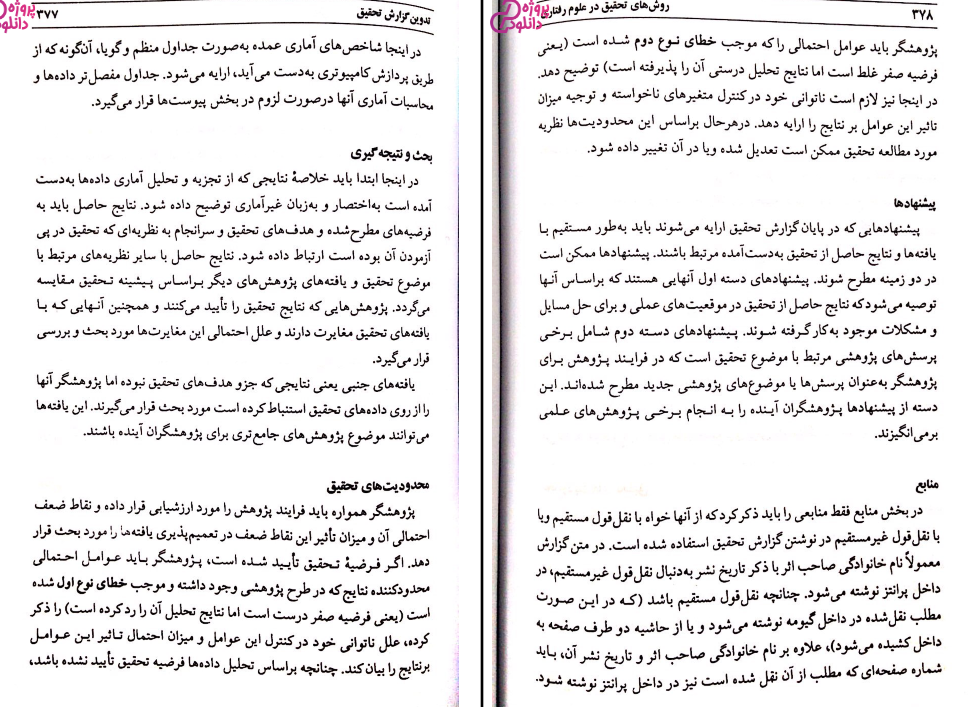 پروژه
دانلود
تدوین گزارش تحقیق ۳۷۷
در اینجا شاخص‌های آماری عمده به‌صورت جداول منظم و گویا، آنگونه که از
طریق پردازش کامپیوتری به‌دست می‌آید، ارایه می‌شود. جداول مفصل‌تر داده‌ها و
محاسبات آماری آنها درصورت لزوم در بخش پیوست‌ها قرار می‌گیرد.
بحث و نتیجه‌گیری
در اینجا ابتدا باید خلاصهٔ نتایجی که از تجزیه و تحلیل آماری داده‌ها به‌دست
آمده است به‌اختصار و به‌زبان غیرآماری توضیح داده شود. نتایج حاصل باید به
فرضیه‌های مطرح‌شده و هدف‌های تحقیق و سرانجام به نظریه‌ای که تحقیق در پی
آزمودن آن بوده است ارتباط داده شود. نتایج حاصل با سایر نظریه‌های مرتبط با
موضوع تحقیق و یافته‌های پژوهش‌های دیگر براساس پیشینه تحقیق مقایسه
می‌گردد. پژوهش‌هایی که نتایج تحقیق را تأیید می‌کنند و همچنین آنهایی که با
یافته‌های تحقیق مغایرت دارند و علل احتمالی این مغایرت‌ها مورد بحث و بررسی
قرار می‌گیرد.
یافته‌های جنبی یعنی نتایجی که جزو هدف‌های تحقیق نبوده اما پژوهشگر آنها
را از روی داده‌های تحقیق استنباط کرده است مورد بحث قرار می‌گیرند. این یافته‌ها
می‌توانند موضوع پژوهش‌های جامع‌تری برای پژوهشگران آینده باشند.
محدودیت‌های تحقیق
پژوهشگر همواره باید فرایند پژوهش را مورد ارزشیابی قرار داده و نقاط ضعف
احتمالی آن و میزان تأثیر این نقاط ضعف در تعمیم‌پذیری یافته‌ها را مورد بحث قرار
دهد. اگر فرضیهٔ تحقیق تأیید شده است، پژوهشگر باید عوامل احتمالی
محدودکننده نتایج که در طرح پژوهشی وجود داشته و موجب خطای نوع اول شده
است (یعنی فرضیه صفر درست است اما نتایج تحلیل آن را رد کرده است) را ذکر
کرده، علل ناتوانی خود در کنترل این عوامل و میزان احتمال تاثیر این عوامل
برنتایج را بیان کند. چنانچه براساس تحلیل داده‌ها فرضیه تحقیق تأیید نشده باشد،
۳۷۸ روش‌های تحقیق در علوم رفتاری
پروژه
دانلود
پژوهشگر باید عوامل احتمالی را که موجب خطای نوع دوم شده است (یعنی
فرضیه صفر غلط است اما نتایج تحلیل درستی آن را پذیرفته است) توضیح دهد.
در اینجا نیز لازم است ناتوانی خود در کنترل متغیرهای ناخواسته و توجیه میزان
تاثیر این عوامل بر نتایج را ارایه دهد. درهرحال براساس این محدودیت‌ها نظریه
مورد مطالعه تحقیق ممکن است تعدیل شده ویا در آن تغییر داده شود.
پیشنهادها
پیشنهادهایی که در پایان گزارش تحقیق ارایه می‌شوند باید به‌طور مستقیم با
یافته‌ها و نتایج حاصل از تحقیق به‌دست‌آمده مرتبط باشند. پیشنهادها ممکن است
در دو زمینه مطرح شوند. پیشنهادهای دسته اول آنهایی هستند که براساس آنها
توصیه می‌شود که نتایج حاصل از تحقیق در موقعیت‌های عملی و برای حل مسایل
و مشکلات موجود به‌کار گرفته شوند. پیشنهادهای دسته دوم شامل برخی
پرسش‌های پژوهشی مرتبط با موضوع تحقیق است که در فرایند پژوهش برای
پژوهشگر به‌عنوان پرسش‌ها یا موضوع‌های پژوهشی جدید مطرح شده‌اند. این
دسته از پیشنهادها پژوهشگران آینده را به انجام برخی پژوهش‌های علمی
برمی‌انگیزند.
منابع
در بخش منابع فقط منابعی را باید ذکر کرد که از آنها خواه با نقل‌قول مستقیم ویا
با نقل‌قول غیرمستقیم در نوشتن گزارش تحقیق استفاده شده است. در متن گزارش
معمولاً نام خانوادگی صاحب اثر با ذکر تاریخ نشر به‌دنبال نقل‌قول غیرمستقیم، در
داخل پرانتز نوشته می‌شود. چنانچه نقل‌قول مستقیم باشد (که در این صورت
مطلب نقل‌شده در داخل گیومه نوشته می‌شود و یا از حاشیه دو طرف صفحه به
داخل کشیده می‌شود)، علاوه بر نام خانوادگی صاحب اثر و تاریخ نشر آن، باید
شماره صفحه‌ای که مطلب از آن نقل شده است نیز در داخل پرانتز نوشته شود.